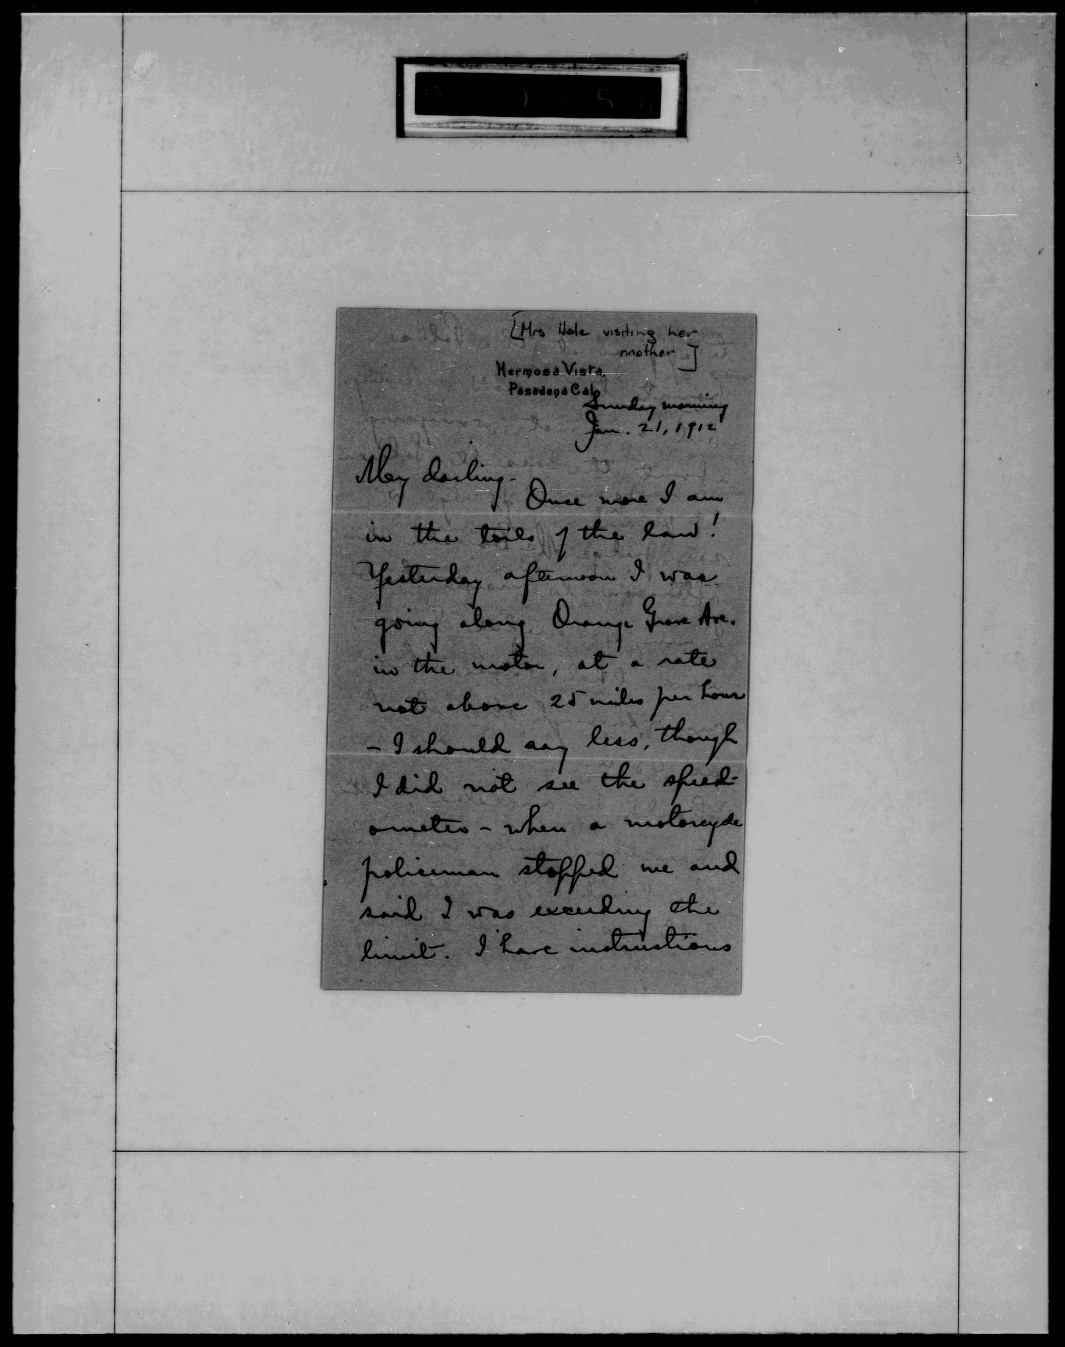 [Mrs Hale visiting her
mother]
Hermosa Vista,
Pasadena Cal.
Sunday morning
Jan. 21, 1912
My darling -
Once more I am
in the toils of the law!
Yesterday afternoon I was
going along Orange Grove Ave.
in the motor, at a rate
not above 25 miles per hour
- I should say less, though
I did not see the speed-
ometer - when a motorcycle
policeman stopped me and
said I was exceeding the
limit. I have instructions